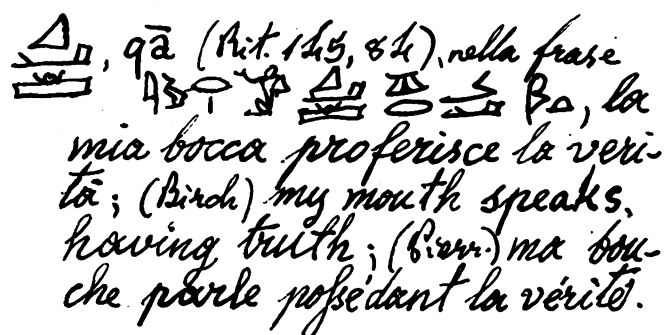 , qā (Rit. 145, 84), nella frase
, la
mia bocca proferisce la veri-
tā; (Birch) my mouth speaks,
having truth; (Pierr.) ma bou-
che parle possédant la vérité.